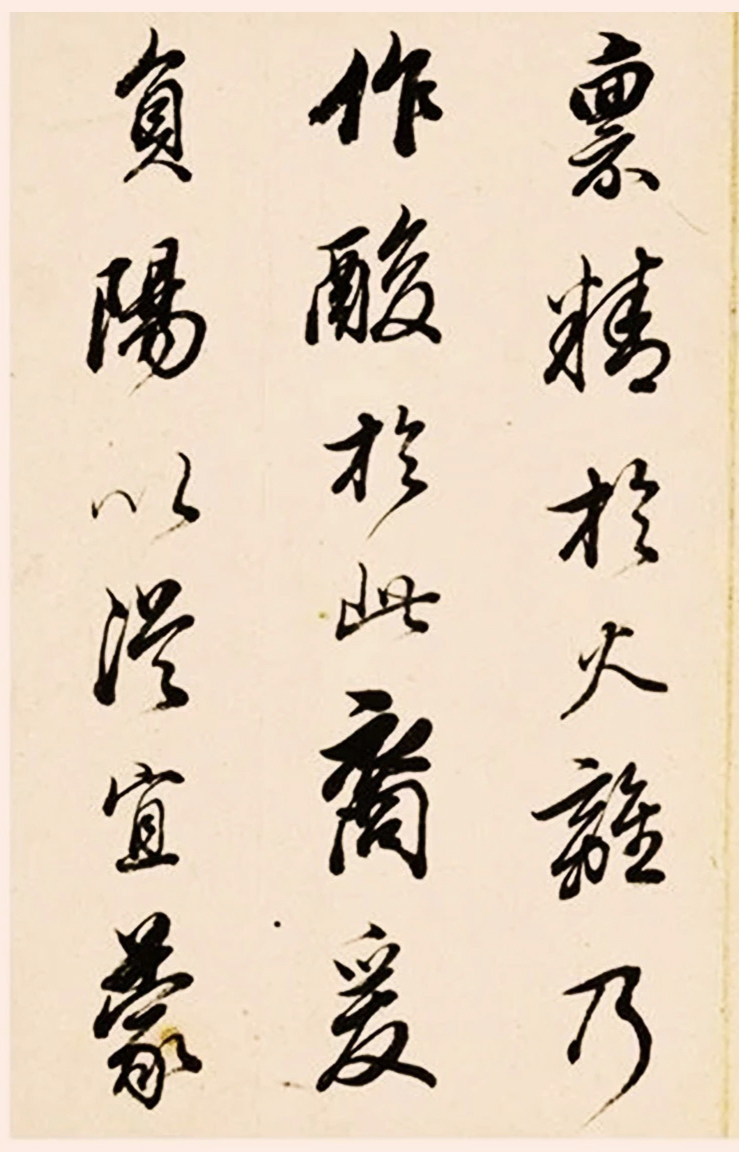 禀精於火離乃
作酸於此裔爰
負陽以從宜蒙